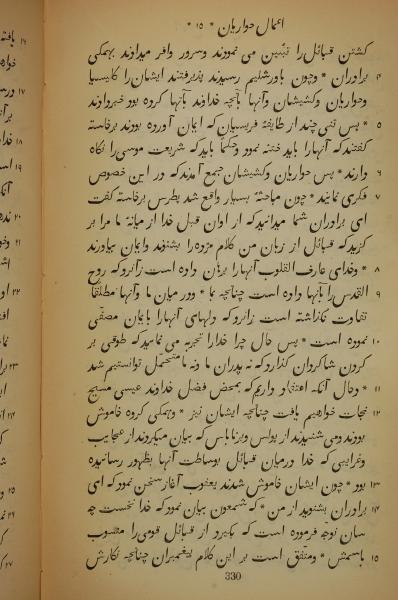 اعمال حواریان * ۱۵ *
کشتن قبائل را تبیین می نمودند وسرور وافر میدادند بهمکی
۴ برادران * وچون باورشلیم رسیدند پذیرفتند ایشان را کلیسیا
وحواریان وکشیشان وآنها بآنچه خداوند بآنها کرده بود خبر دادند
۵ * پس تنی چند از طایفهٔ فریسیان که ایمان آورده بودند برخاسته
کفتند که آنها را باید ختنه نمود وحکماً باید که شریعت موسی را نکاه
۶ دارند * پس حواریان وکشیشان جمع آمدند که در این خصوص
۷ فکری نمایند * چون مباحثهٔ بسیار واقع شد پطرس برخاسته کفت
ای برادران شما میدانید که از اوان قبل خدا از میانهٔ ما مرا بر
کزید که قبائل از زبان من کلام مژده را بشنوند وایمان بیاورند
۸ * وخدای عارف القلوب آنها را برهان داده است زانرو که روح
۹ القدس را بآنها داده است چنانچه بما * ودر میان ما وآنها مطلقاً
تفاوت نکذاشته است زانرو که دلهای آنها را بایمان مصفّی
۱۰ نموده است * پس حال چرا خدا را تجربه می نمائید که طوقی بر
کردن شاکردان کذارد که نه پدران ما ونه ما متحمل توانستیم شد
۱۱ * وحال آنکه اعتقاد داریم که بمحض فضل خداوند عیسی مسیح
۱۲ نجات خواهیم یافت چنانچه ایشان نیز * وهمکی کروه خاموش
بودند ومی شنیدند از پولس وبرناباس که بیان میکردند از عجایب
وغرایبی که خدا درمیان قبائل بوساطت آنها بظهور رسانیده
۱۳ بود * چون ایشان خاموش شدند یعقوب آغاز سخن نمود که ای
۱۴ برادران بشنوید از من * که شمعون بیان نمود که خدا نخست چه
سان توجّه فرموده است که بکیرد از قبائل قومی را منسوب
۱۵ باسمش * ومتّفق است بر این کلام پیغمبران چنانچه نکارش
330